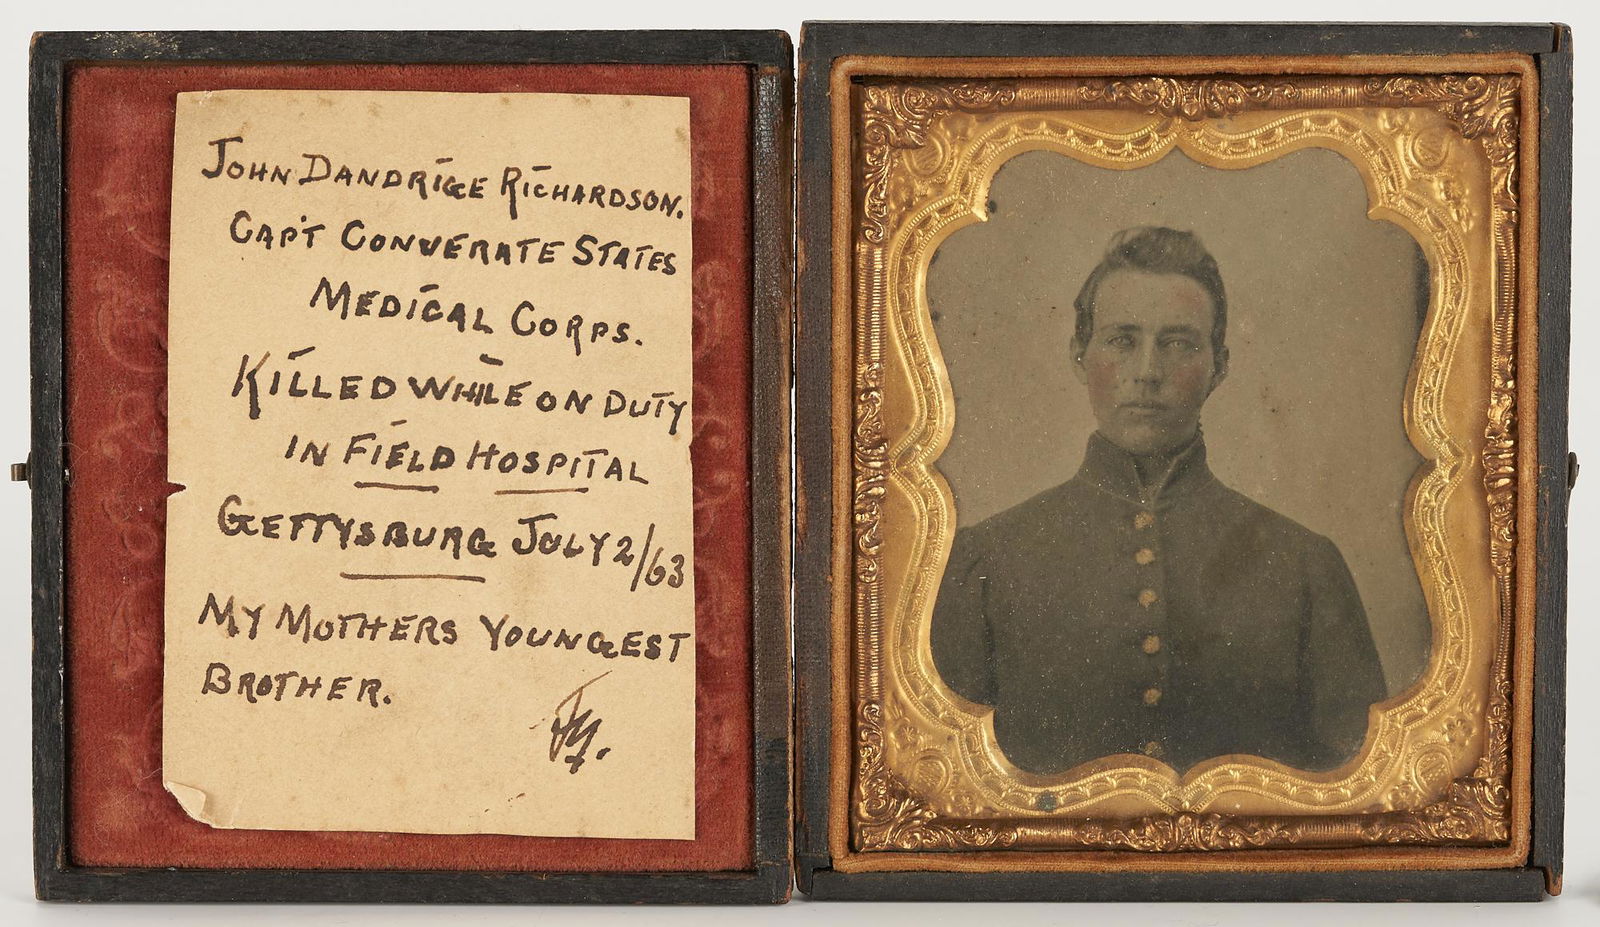 JOHN DANDRIGE RICHARDSON.
CAP'T CONVERATE STATES
MEDICAL CORPS.
KILLED WHILE ON DUTY
IN FIELD HOSPITAL
GETTYSBURG JULY 2/63
MY MOTHERS YOUNGEST
BROTHER.